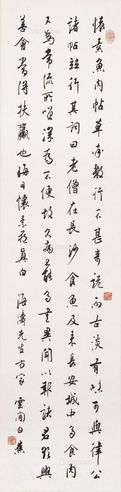 懷素魚肉帖草書數行不甚奇詭而古淡有味可與律公
諸帖並行其詞曰老僧在長沙食魚及來長安城中多食肉
又為常流所深為不便故久病不能多書以報諸君欲興
善會當得扶羸也晦日懷素藏真白 海濤先生方家 雲間白蕉